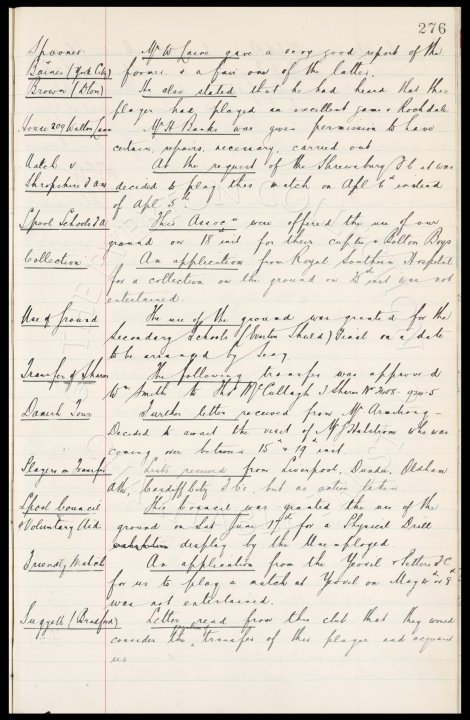 276
Spooner Mr W Laine gave a very good report of the
Baines (York City) former & a fair one of the latter.
Brown (Alon) He also stated that he had heard that this
player had played an excellent game v Rochdale
House 209 Walton Lane Mr H Banks was given permission to have
certain, repairs, necessary, carried out
Match v At the request of the Shrewsbury F.C. it was
Shropshire F.A. decided to play this match on Apl 6th instead
of Apl 5th.
Lpool Schools F.A. This Assocn were offered the use of our
ground on 18th inst for their cuptie v Bolton Boys
Collection An application from Royal Southern Hospital
for a collection on the ground on inst was not
entertained.
Use of Ground The use of the ground was granted for the
Secondary Schools (Everton Shield) Final on a date
to be arranged by Secy
Transfer of Shares The following transfer was approved
Wm Smith to Thos McCullagh 3 Shares No
Danish Tour Further letter received from Mr Armstrong -
Decided to await the visit of Mr Halstrom who was
coming over between 15th & 19th inst.
Players on Transfer Lists received from Liverpool, Dundee, Oldham
Ath, Cardiff City F.Cs. but no action taken
Lpool Council This Council was granted the use of the
& Voluntary Aid. ground on Sat June 17th for a Physical Drill
display by the Unemployed.
Friendly Match An application from the Yeovil & Petters F.C.
for us to play a match at Yeovil on May
was not entertained.
Suggett (Bradford) Letter read from this club that they would
consider the question transfer of this player and acquaint
us